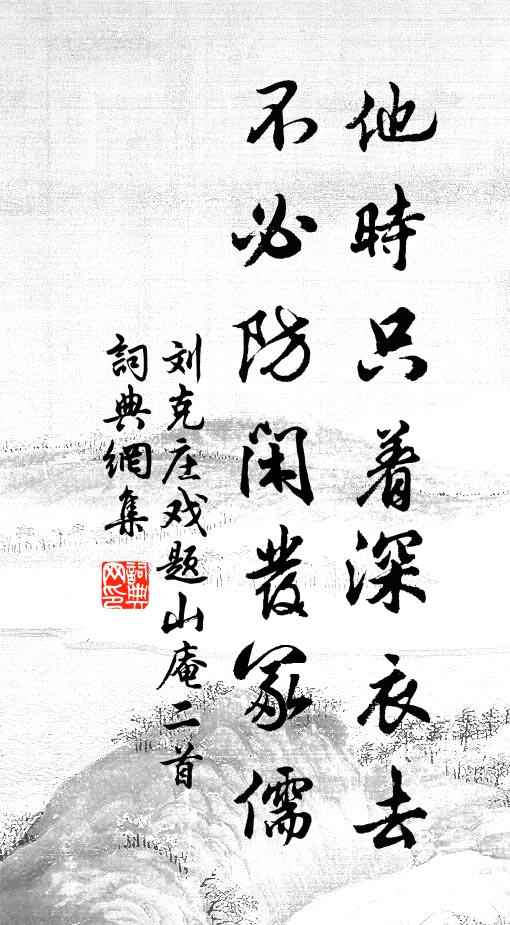 他時只着深衣去
不必防閑發冢儒
刘克庄戏题山庵二首
詞典網集
詞典网印